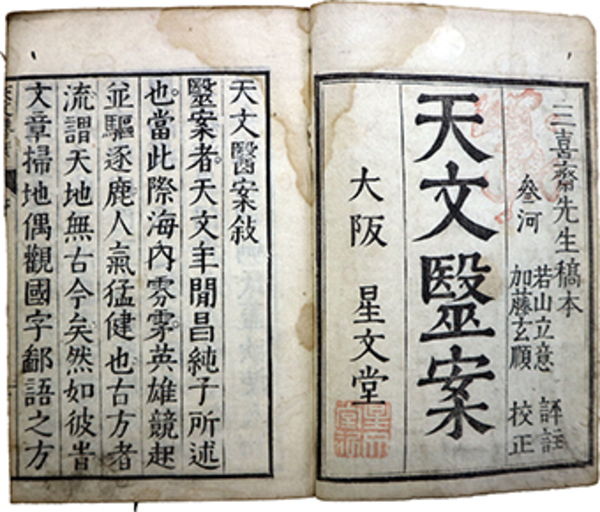 三喜齋先生稿本
叅河 若山立意 評註
加藤玄順 校正
天文毉案
大阪 星文堂
天文醫案敘
毉案者天文年間昌純子所述
也當此際海內雰雺英雄競起
並驅逐鹿人氣猛健也古方者
流謂天地無古今矣然如彼昔
文章掃地偶觀國字鄙語之方